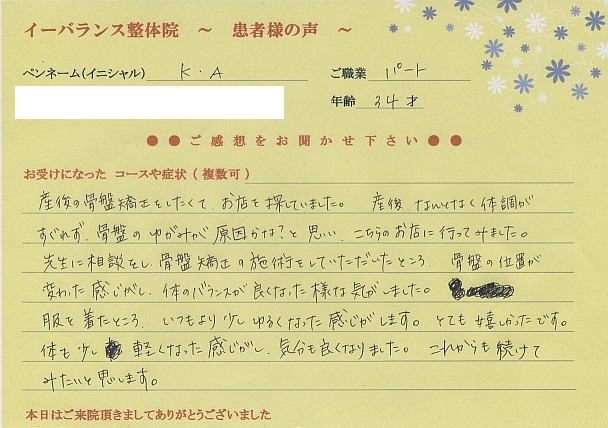 イーバランス整体院 ～ 患者様の声 ～
ペンネーム(イニシャル) K・A ご職業 パート
年齢 34才
●●ご感想をお聞かせ下さい●●
お受けになった コースや症状 ( 複数可 )
産後の骨盤矯正をしたくて、お店を探していました。 産後、なんとなく体調が
すぐれず、骨盤のゆがみが原因かな?と思い、こちらのお店に行ってみました。
先生に相談をし、骨盤矯正の施術をしていただいたところ、骨盤の位置が
変わった感じがし、体のバランスが良くなった様な気がしました。
服を着たところ、いつもより少しゆるくなった感じがします。とても嬉しかったです。
体も少し軽くなった感じがし、気分も良くなりました。これからも続けて
みたいと思います。
本日はご来院頂きましてありがとうございました